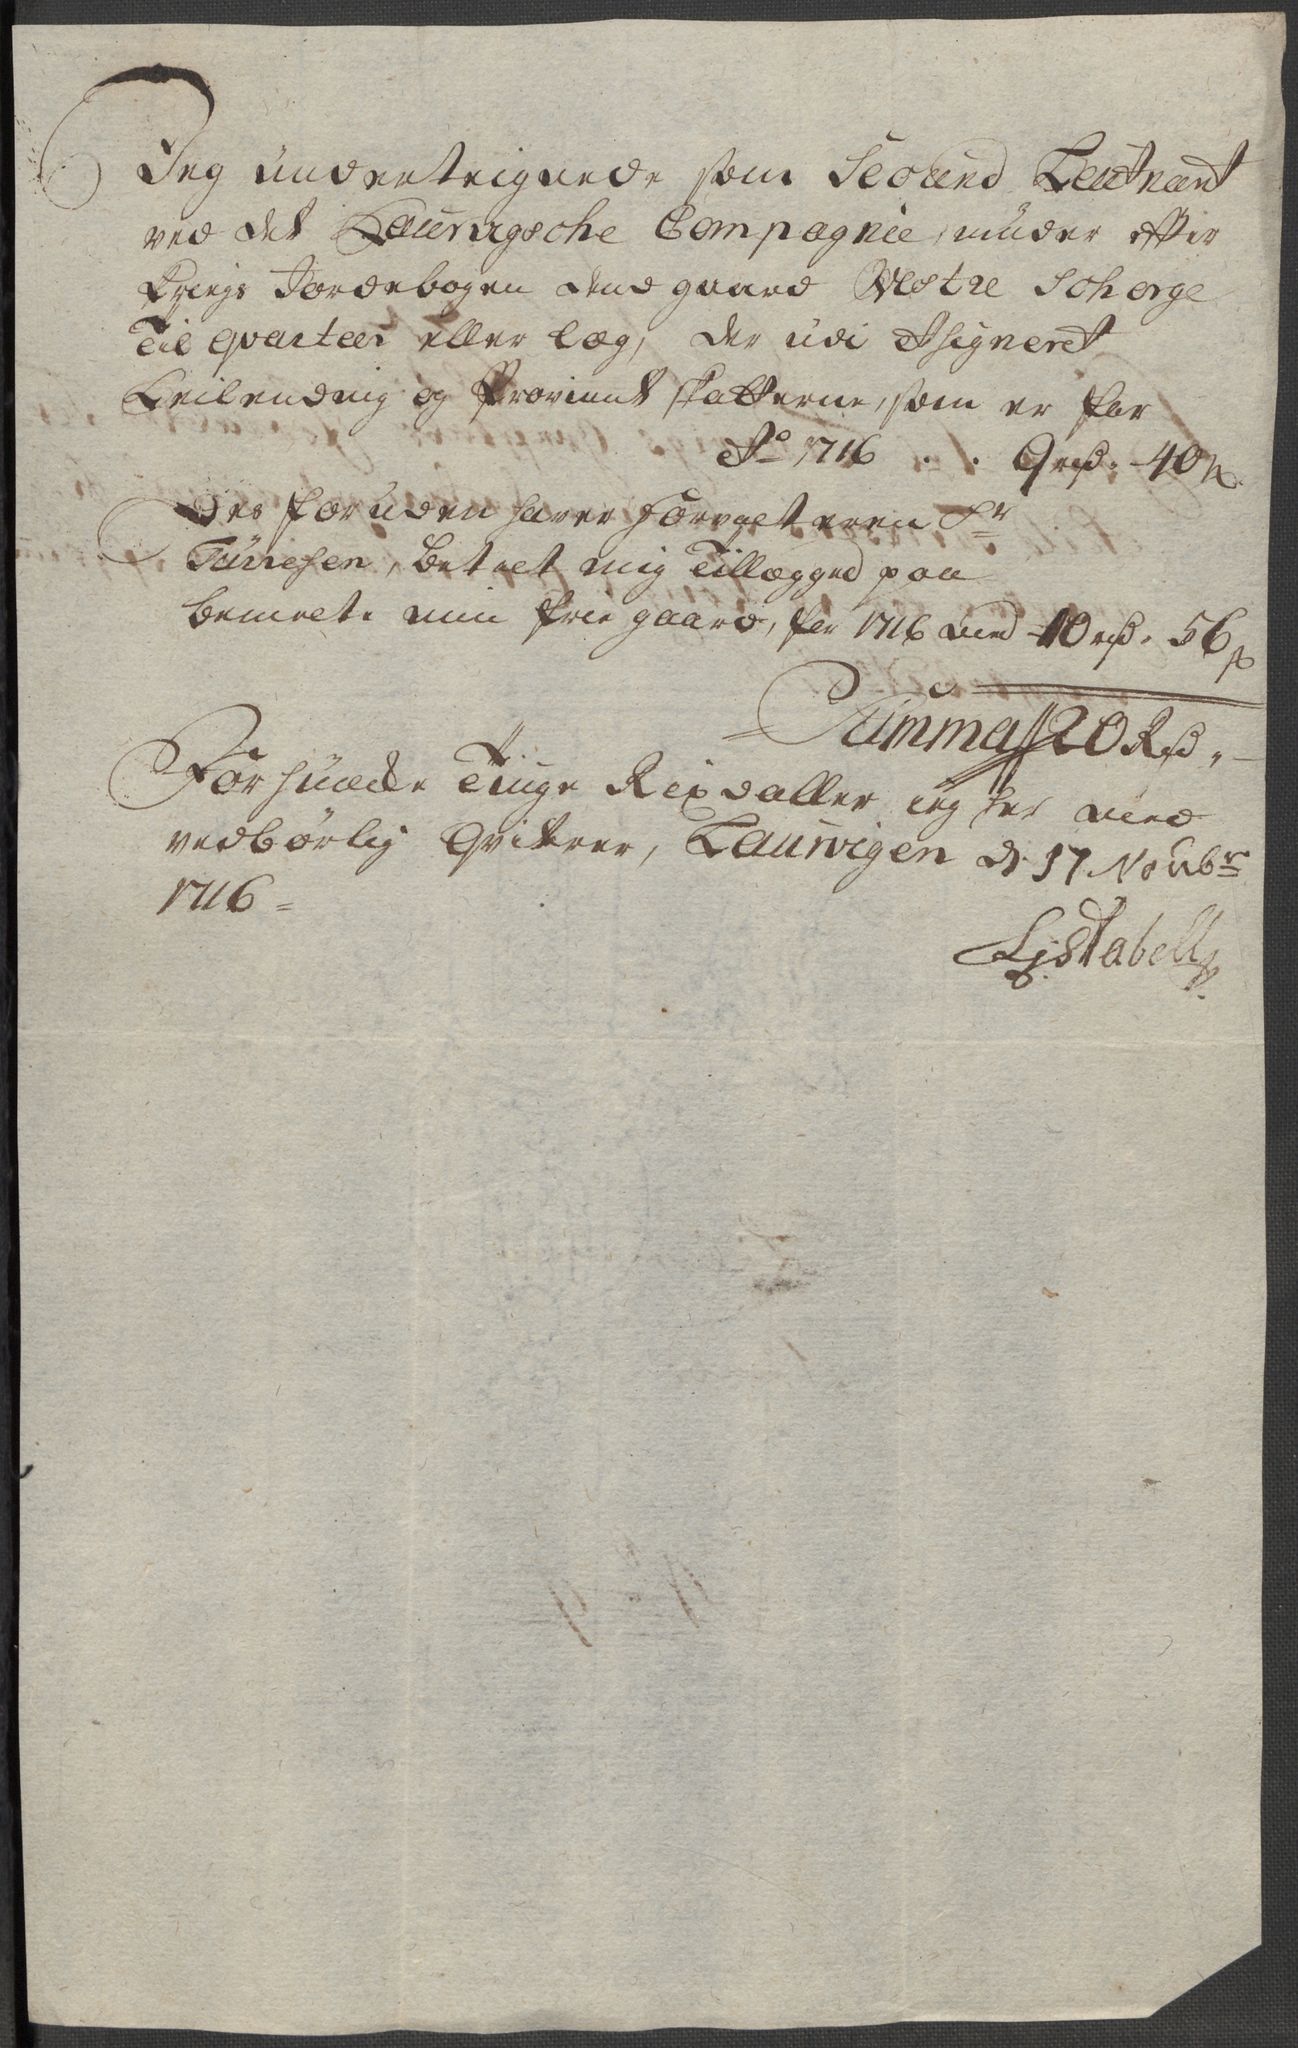 Jeg underteignede som Secund Leutnant
ved det Laurvigsche Compagnie, niuder efter
Krigs Jordebogen dend gaard Westre Schorge
Til qvarteer eller læg, der udi Assigneret
Leilending og Proviant skatterne, som er for
Ao 1716 . . 9 rd. 40 s.
Des foruden haver Forvalteren Sr
Tünnesen, betalt mig Tillegged paa
bemelte min frie gaard, for 1716 med 10 rd. 56 s
Summa 20 Rd. -
For huilcke Tiuge Rixdaller ieg her med
vedbørlig Qviterer, Laurvigen d. 17 Novbr
1716 =